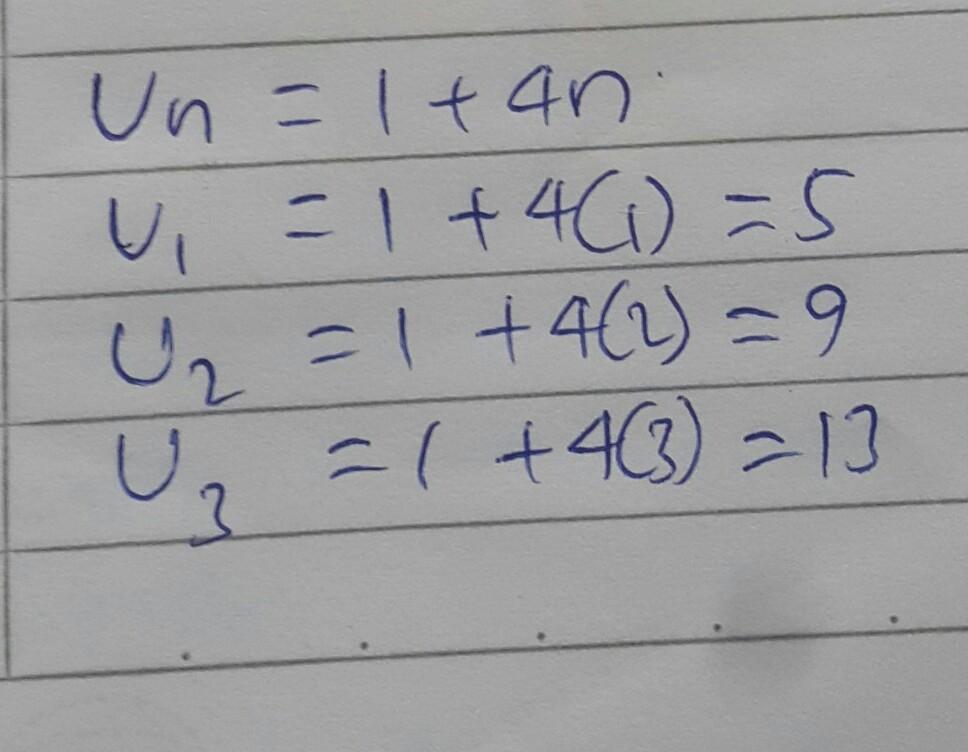 Un = 1 + 4n
U₁ = 1 + 4(1) = 5
U₂ = 1 + 4(2) = 9
U₃ = 1 + 4(3) = 13